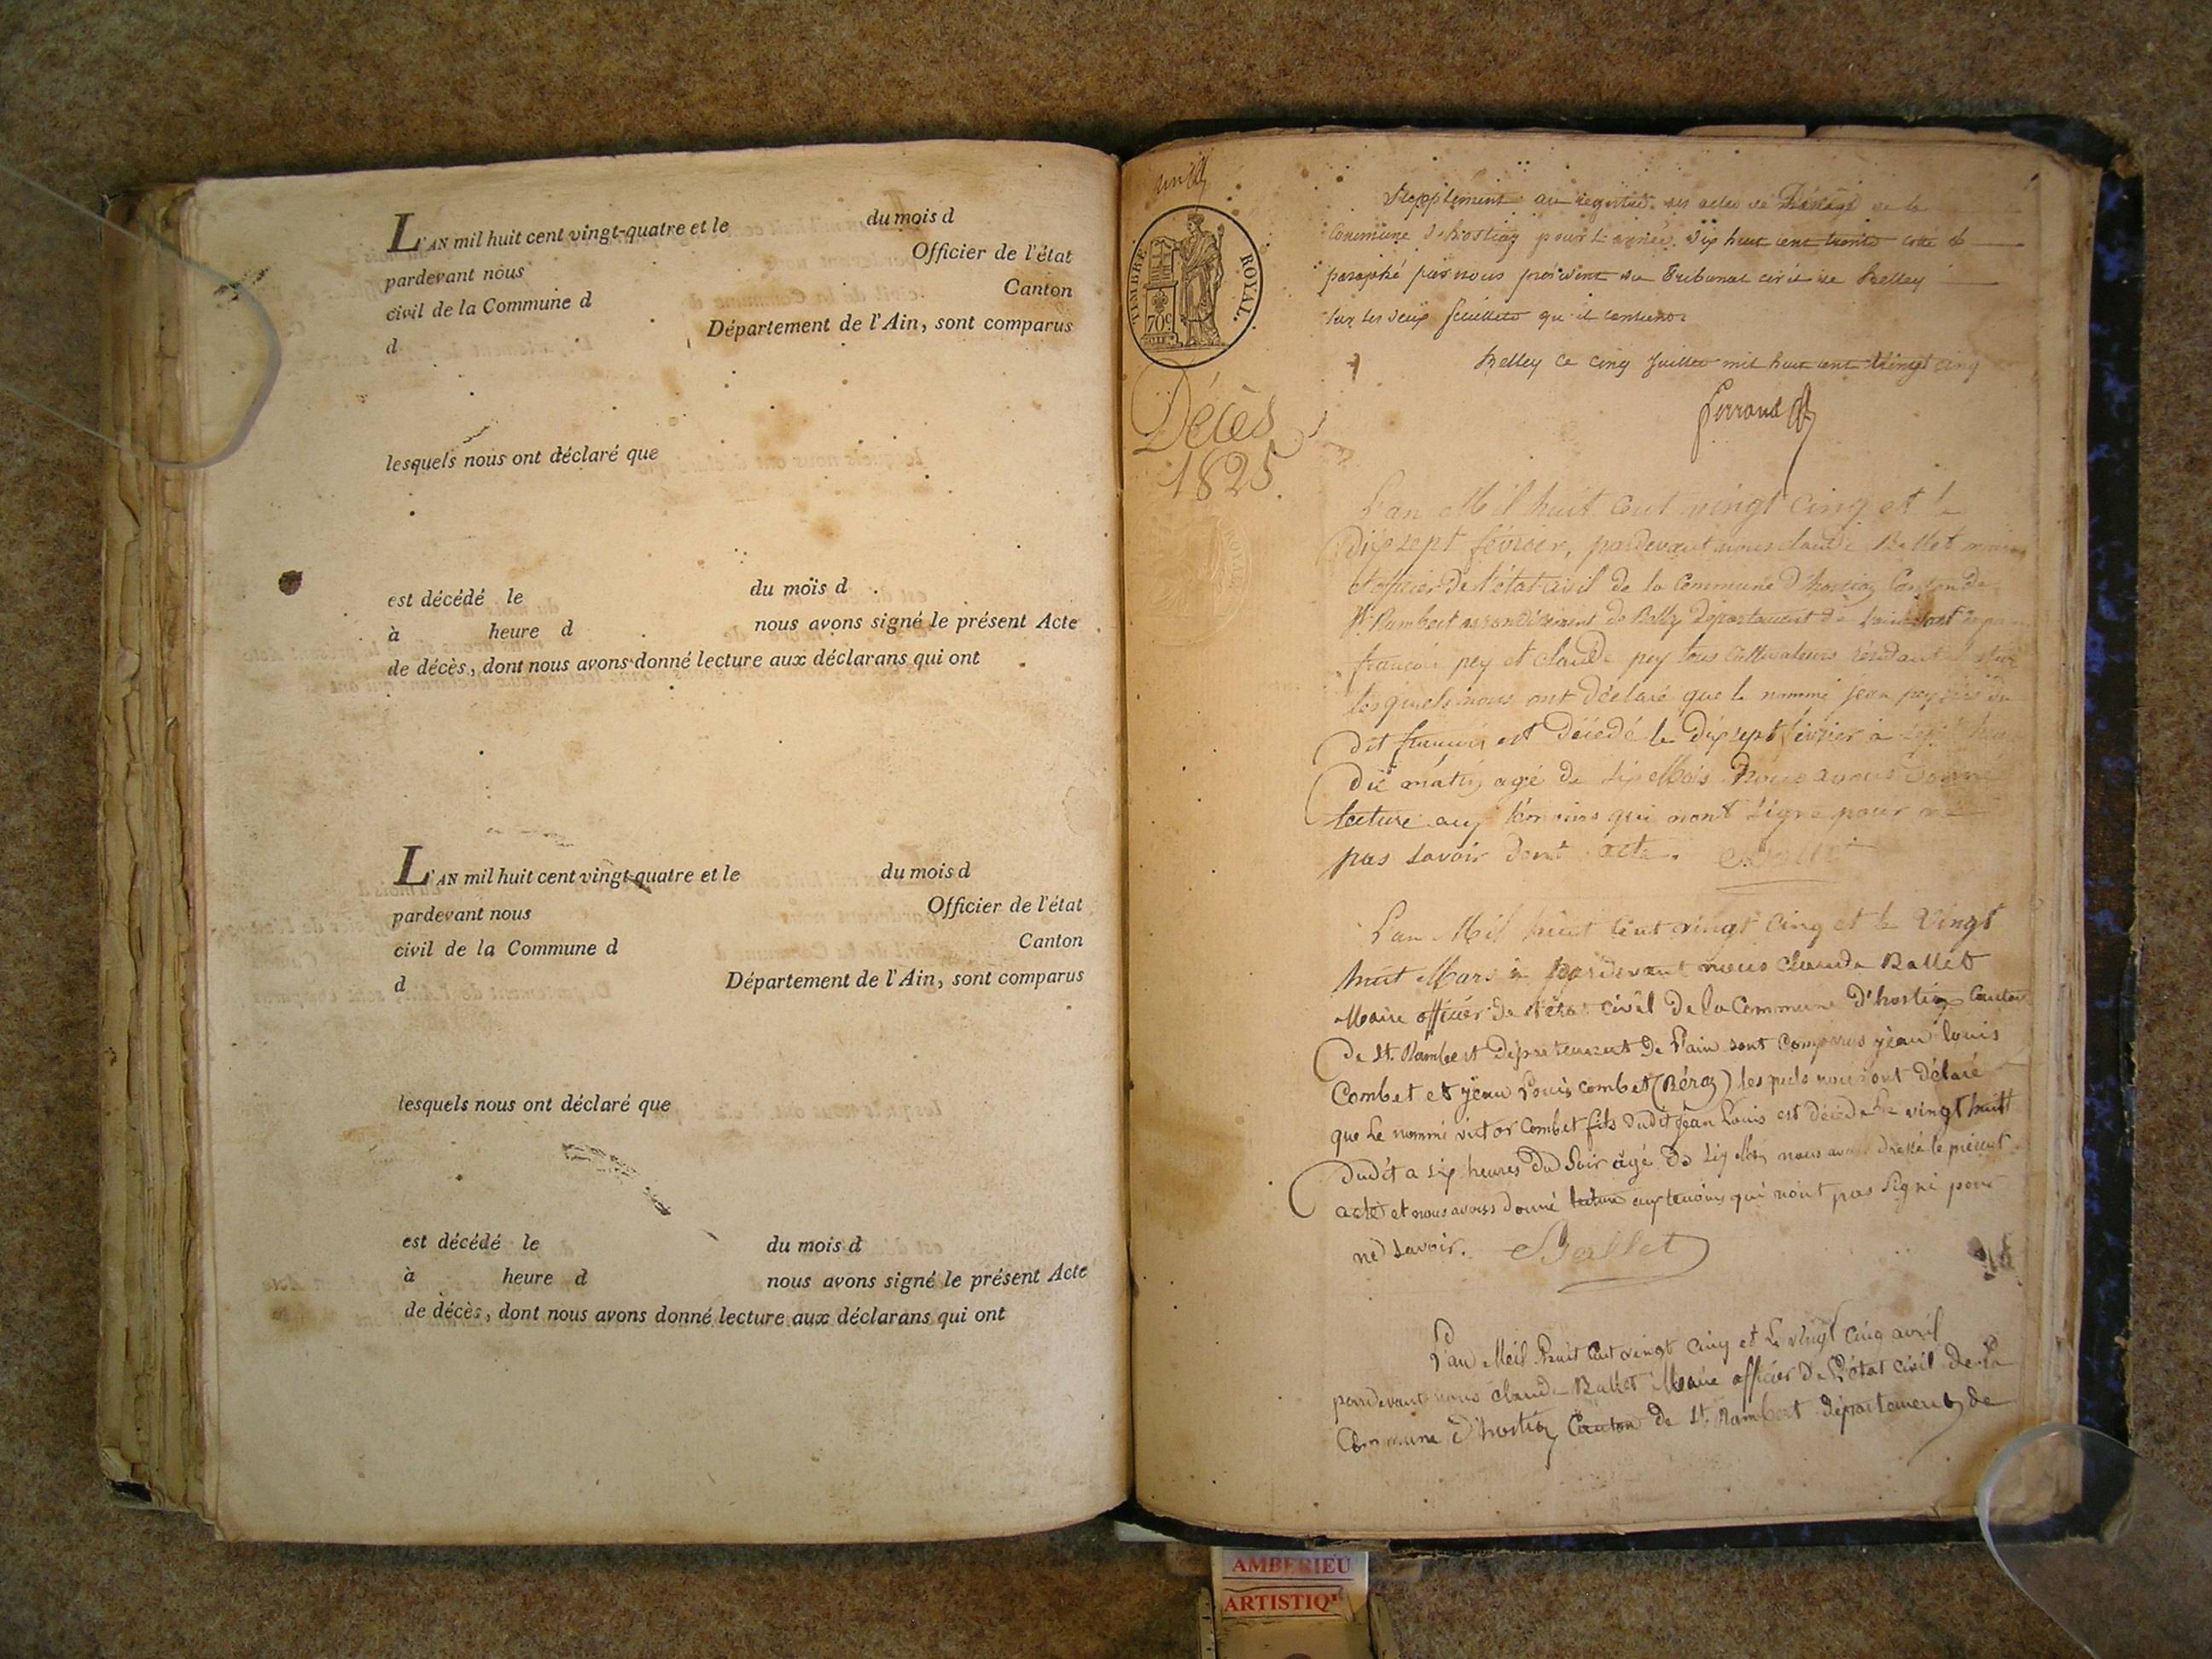 L'AN mil huit cent vingt-quatre et le du mois d
pardevant nous Officier de l'état
civil de la Commune d Canton
d Département de l'Ain, sont comparus
lesquels nous ont déclaré que
est décédé le du mois d
à heure d nous avons signé le présent Acte
de décès, dont nous avons donné lecture aux déclarans qui ont
L'AN mil huit cent vingt-quatre et le du mois d
pardevant nous Officier de l'état
civil de la Commune d Canton
d Département de l'Ain, sont comparus
lesquels nous ont déclaré que
est décédé le du mois d
à heure d nous avons signé le présent Acte
de décès, dont nous avons donné lecture aux déclarans qui ont
TIMBRE ROYAL.
70c
Décès
1825.
Supplément au registre des actes de de la
Commune d'hostiaz pour l'année dix huit cent coté et
paraphé par nous président du Tribunal civil de Belley
sur les deux feuillets qu'il contient.
Belley ce cinq juillet mil huit cent vingt cinq
L'an Mil huit Cent vingt Cinq et le
dix sept février, pardevant nous claude Ballet maire
et officier de l'état civil de la Commune d'hostiaz Canton de
St. Rambert arrondissement de Belley Département de l'ain sont
françois pey et claude pey tous cultivateurs
lesquels nous ont déclaré que le nommé jean pey
dit françois est décédé le dix sept février à sept
du matin agé de six Mois Nous avons donné
lecture aux témoins qui n'ont signé pour ne
pas savoir dont acte. Ballet
L'an Mil huit Cent vingt Cinq et le vingt
huit Mars pardevant nous claude Ballet
Maire officier de l'état civil de la Commune d'hostiaz Canton
de St. Rambert Département de l'ain sont Comparus jean louis
Combet et jean Louis combet (Béroz) lesquels nous ont déclaré
que le nommé victor Combet fils dudit jean Louis est décédé le vingt huit
dudit a six heures du soir agé de six Mois nous avons dressé le présent
acte et nous avons donné lecture aux temoins qui n'ont pas signé pour
ne savoir. Ballet
L'an Mil huit Cent vingt cinq et le vingt cinq avril
pardevant nous claude Ballet Maire officier de l'état civil de la
Commune d'hostiaz Canton de St. Rambert département de
AMBERIEU
ARTISTIQ